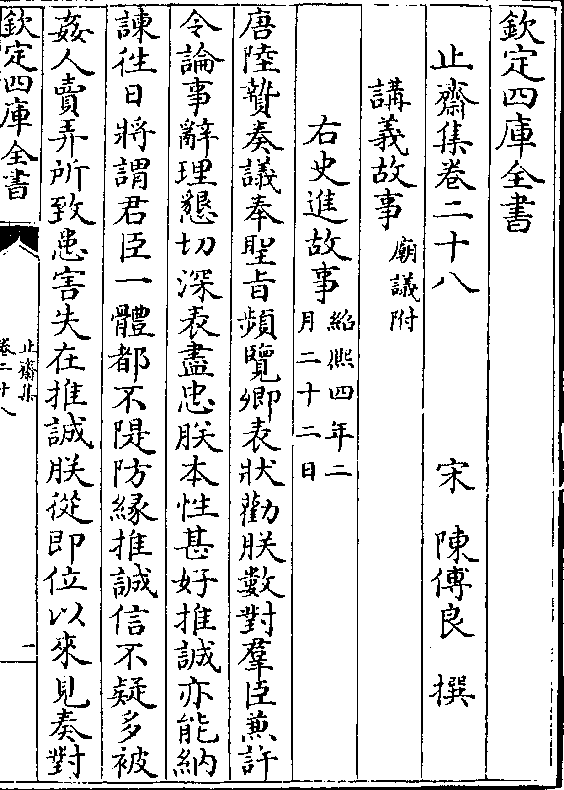 欽定四庫全書
止齋集卷二十八
宋 陳傅良 撰
講義故事廟議附
右史進故事紹熙四年二月二十二日
唐陸贄奏議奉聖旨頻覽卿表狀勸朕數對羣臣兼許
令論事辭理懇切深表盡忠朕本性甚好推誠亦能納
諫徃日將謂君臣一體都不隄防縁推誠信不疑多被
姦人賣弄所致患害失在推誠朕從即位以來見奏對
欽定四庫全書
止齋集
卷二十八
一